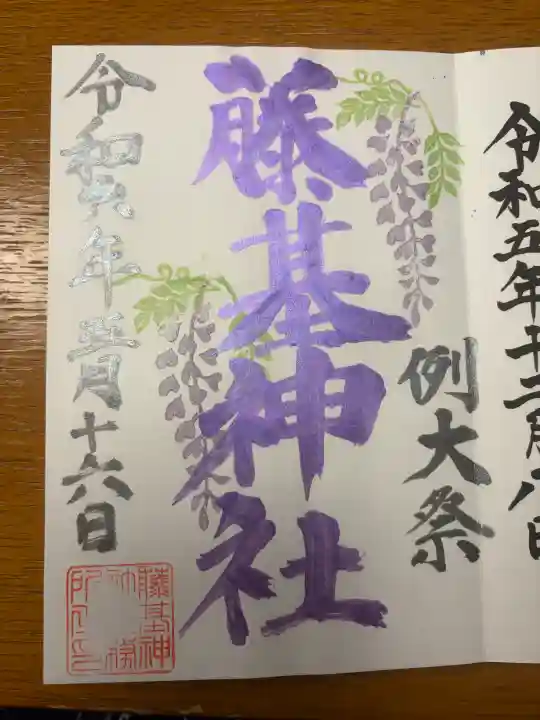 令和五年十二月八日
例大祭
藤基神社
令和六年五月十六日
藤基神
社務
所之印